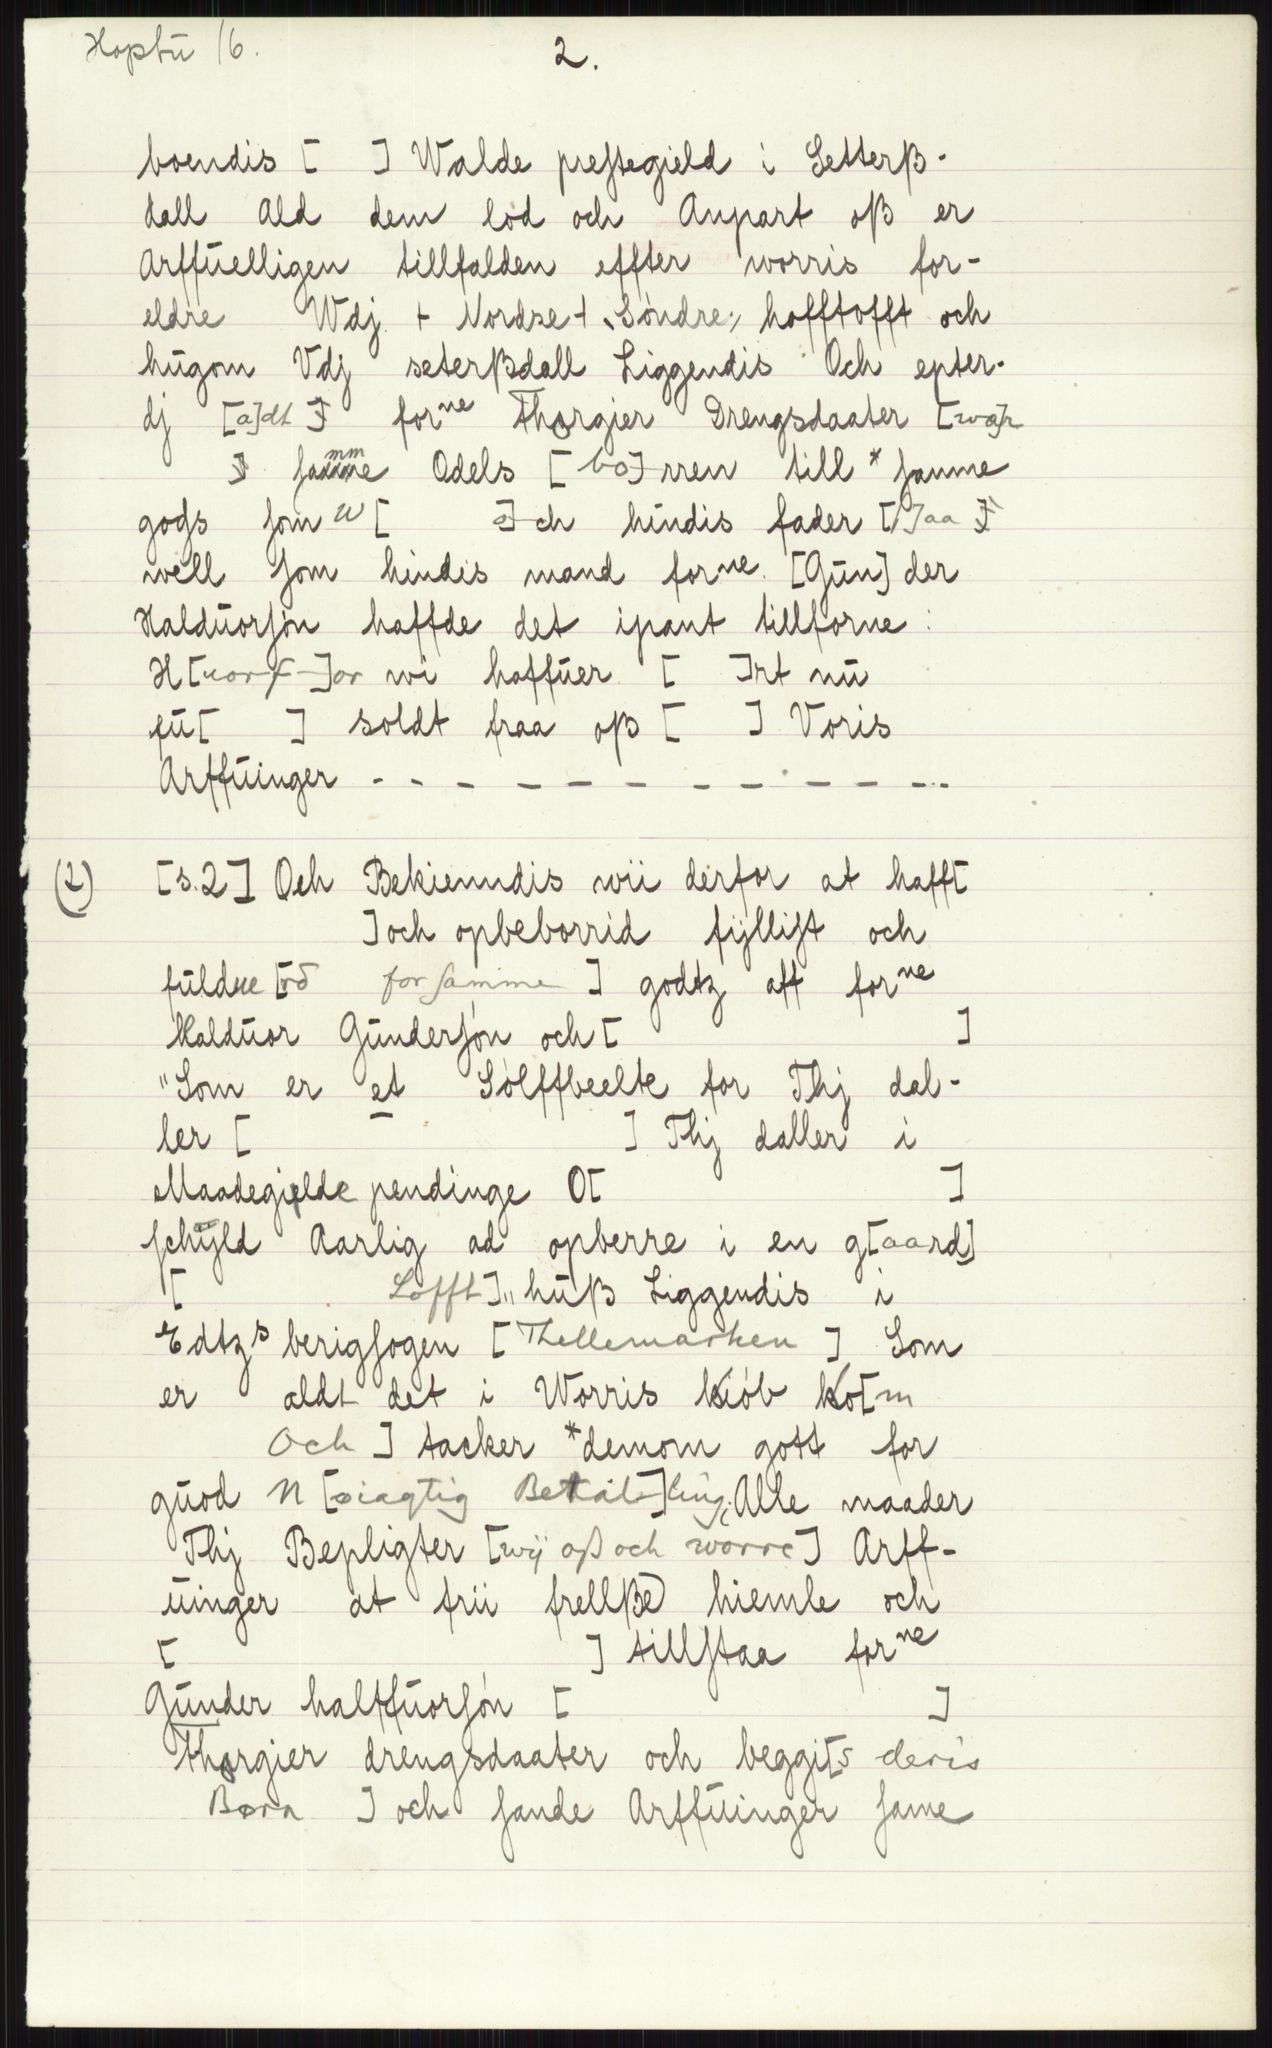 Hoptu 16.
2.
boendis [ ] Walde prestegield i Setterß-
dall Ald dem lod och Anpart oß er
Arffuelligen tillfalden effter worris for-
eldre Wdj + Nordre + Söndre hofftofft och
hugom Vdj seterßdall Liggendis Och epter-
dj [a]dt forne Thorgier Drengsdaater [wa]r
] samme Odels [bo]rren till * samme
gods som w [ o]ch hindis fader [s]aa
well som hindis mand forne [Gun]der
Halduorsön haffde det ipant tillforne:
H[uorf]or wi haffuer [ ]rt nu
fu[ ] soldt fraa oß [ ] Voris
Arffuinger - - - - - - - - - - -
(2) [s.2] Och Bekienndis wii derfor at hafft[
] och opbeborrid fyllist och
fuldne [rö for samme ] godtz aff forne
Halduor Gundersön och [ ]
"Som er et Sölffbeelte for Thj dal-
ler [ ] Thj daller i
Maadegielde pendinge O[ ]
schyld Aarlig ad opberre i en g[aard]
[ Lofft]" huß Liggendis i
Edtzsberigsogen [Thellemarken ] Som
er aldt det i Worris kiöb ko[m
Och ] tacker *demom gott for
guod N[öiagtig Betal]ling, Alle maader
Thj Bepligter [wij oß och worre] Arff-
uinger at frii frellße hiemle och
[ ] tillstaa forne
Gunder halffuorsön [ ]
Thorgier drengsdaater och beggi[s deris
Börn ] och sande Arffuinger same